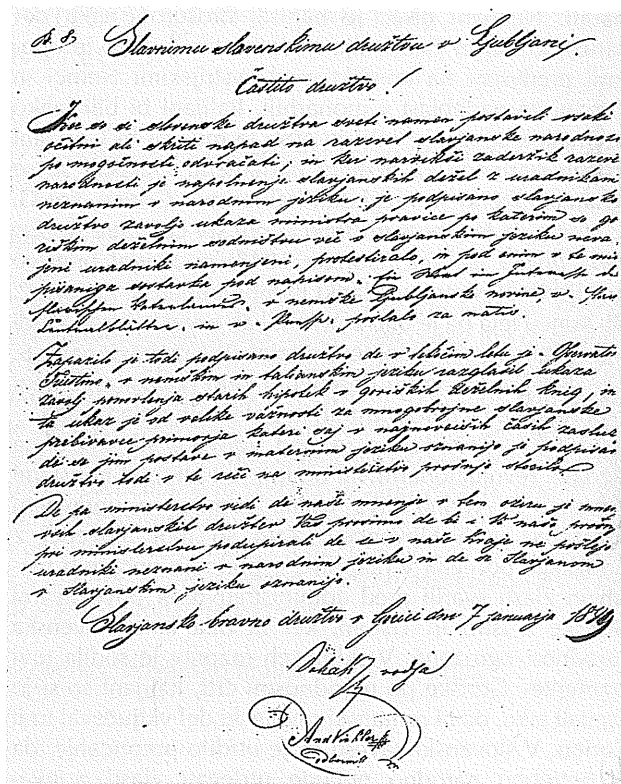 Slavnimu slavenskimu družtvu v Ljubljani.
Častito družtvo!
Ker so si slovenske družtva sveti namen postavili vsaki
očitni ali skriti napad na razcvet slavjanske narodnos
po mogočnosti odvračati; in ker narvikši zaderžik razcve
narodnosti je napolnenje slavjanskih dežel z uradnikam
neznanim v narodnim jeziku: je podpisano slavjansko
družtvo zavolj ukaza ministra pravice po katerim so go
riškim deželnim sodništvu več v slavjanskim jeziku neva
jeni uradniki namenjeni, protestiralo, in pod enim v te mis
pisaniga sostavka pod napisam. Ein Wort im Interesse de
slavischen Vaterlandes. v nemške Ljubljanske novine, v. Slav
Centralblätter. in v. poslalo za natis.
Zapazilo je tudi podpisano družtvo de v letošim letu je. Osservato
Triestino. v nemškim in talianskim jeziku razglasil ukaza
zavolj ponovlenja starih hipotek v goriških deželnih knig, in
ta ukaz je od velike važnosti za mnogobrojne slavjanske
prebivavce primorja kateri saj v najnovejših časih zaslu
de se jim postave v maternim jeziku oznanijo je podpisa
družtvo tudi v te reči na ministerstvo prošnjo storilo.
De pa ministerstvo vidi de naše mnenje v tem ozeru je mne
vsih slavjanskih družtev Vas prosimo de bi i Vi naše prošnj
pri ministerstvu podupirali de se v naše kraje ne pošlejo
uradniki neznani v narodnim jeziku in de se Slavjanam
v slavjanskim jeziku oznanijo.
Slavjansko bravno družtvo v Gorici dne 7 januarja 1849
vodja
odbornik